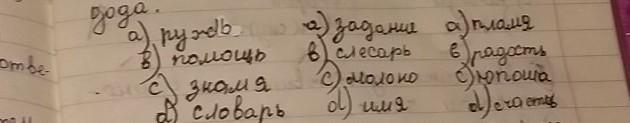 рода.
а) рухль а) задание а) пламя
в) помощь в) слесарь в) радость
отве- с) знамя с) молоко с) юноша
d) словарь d) имя d) счастье